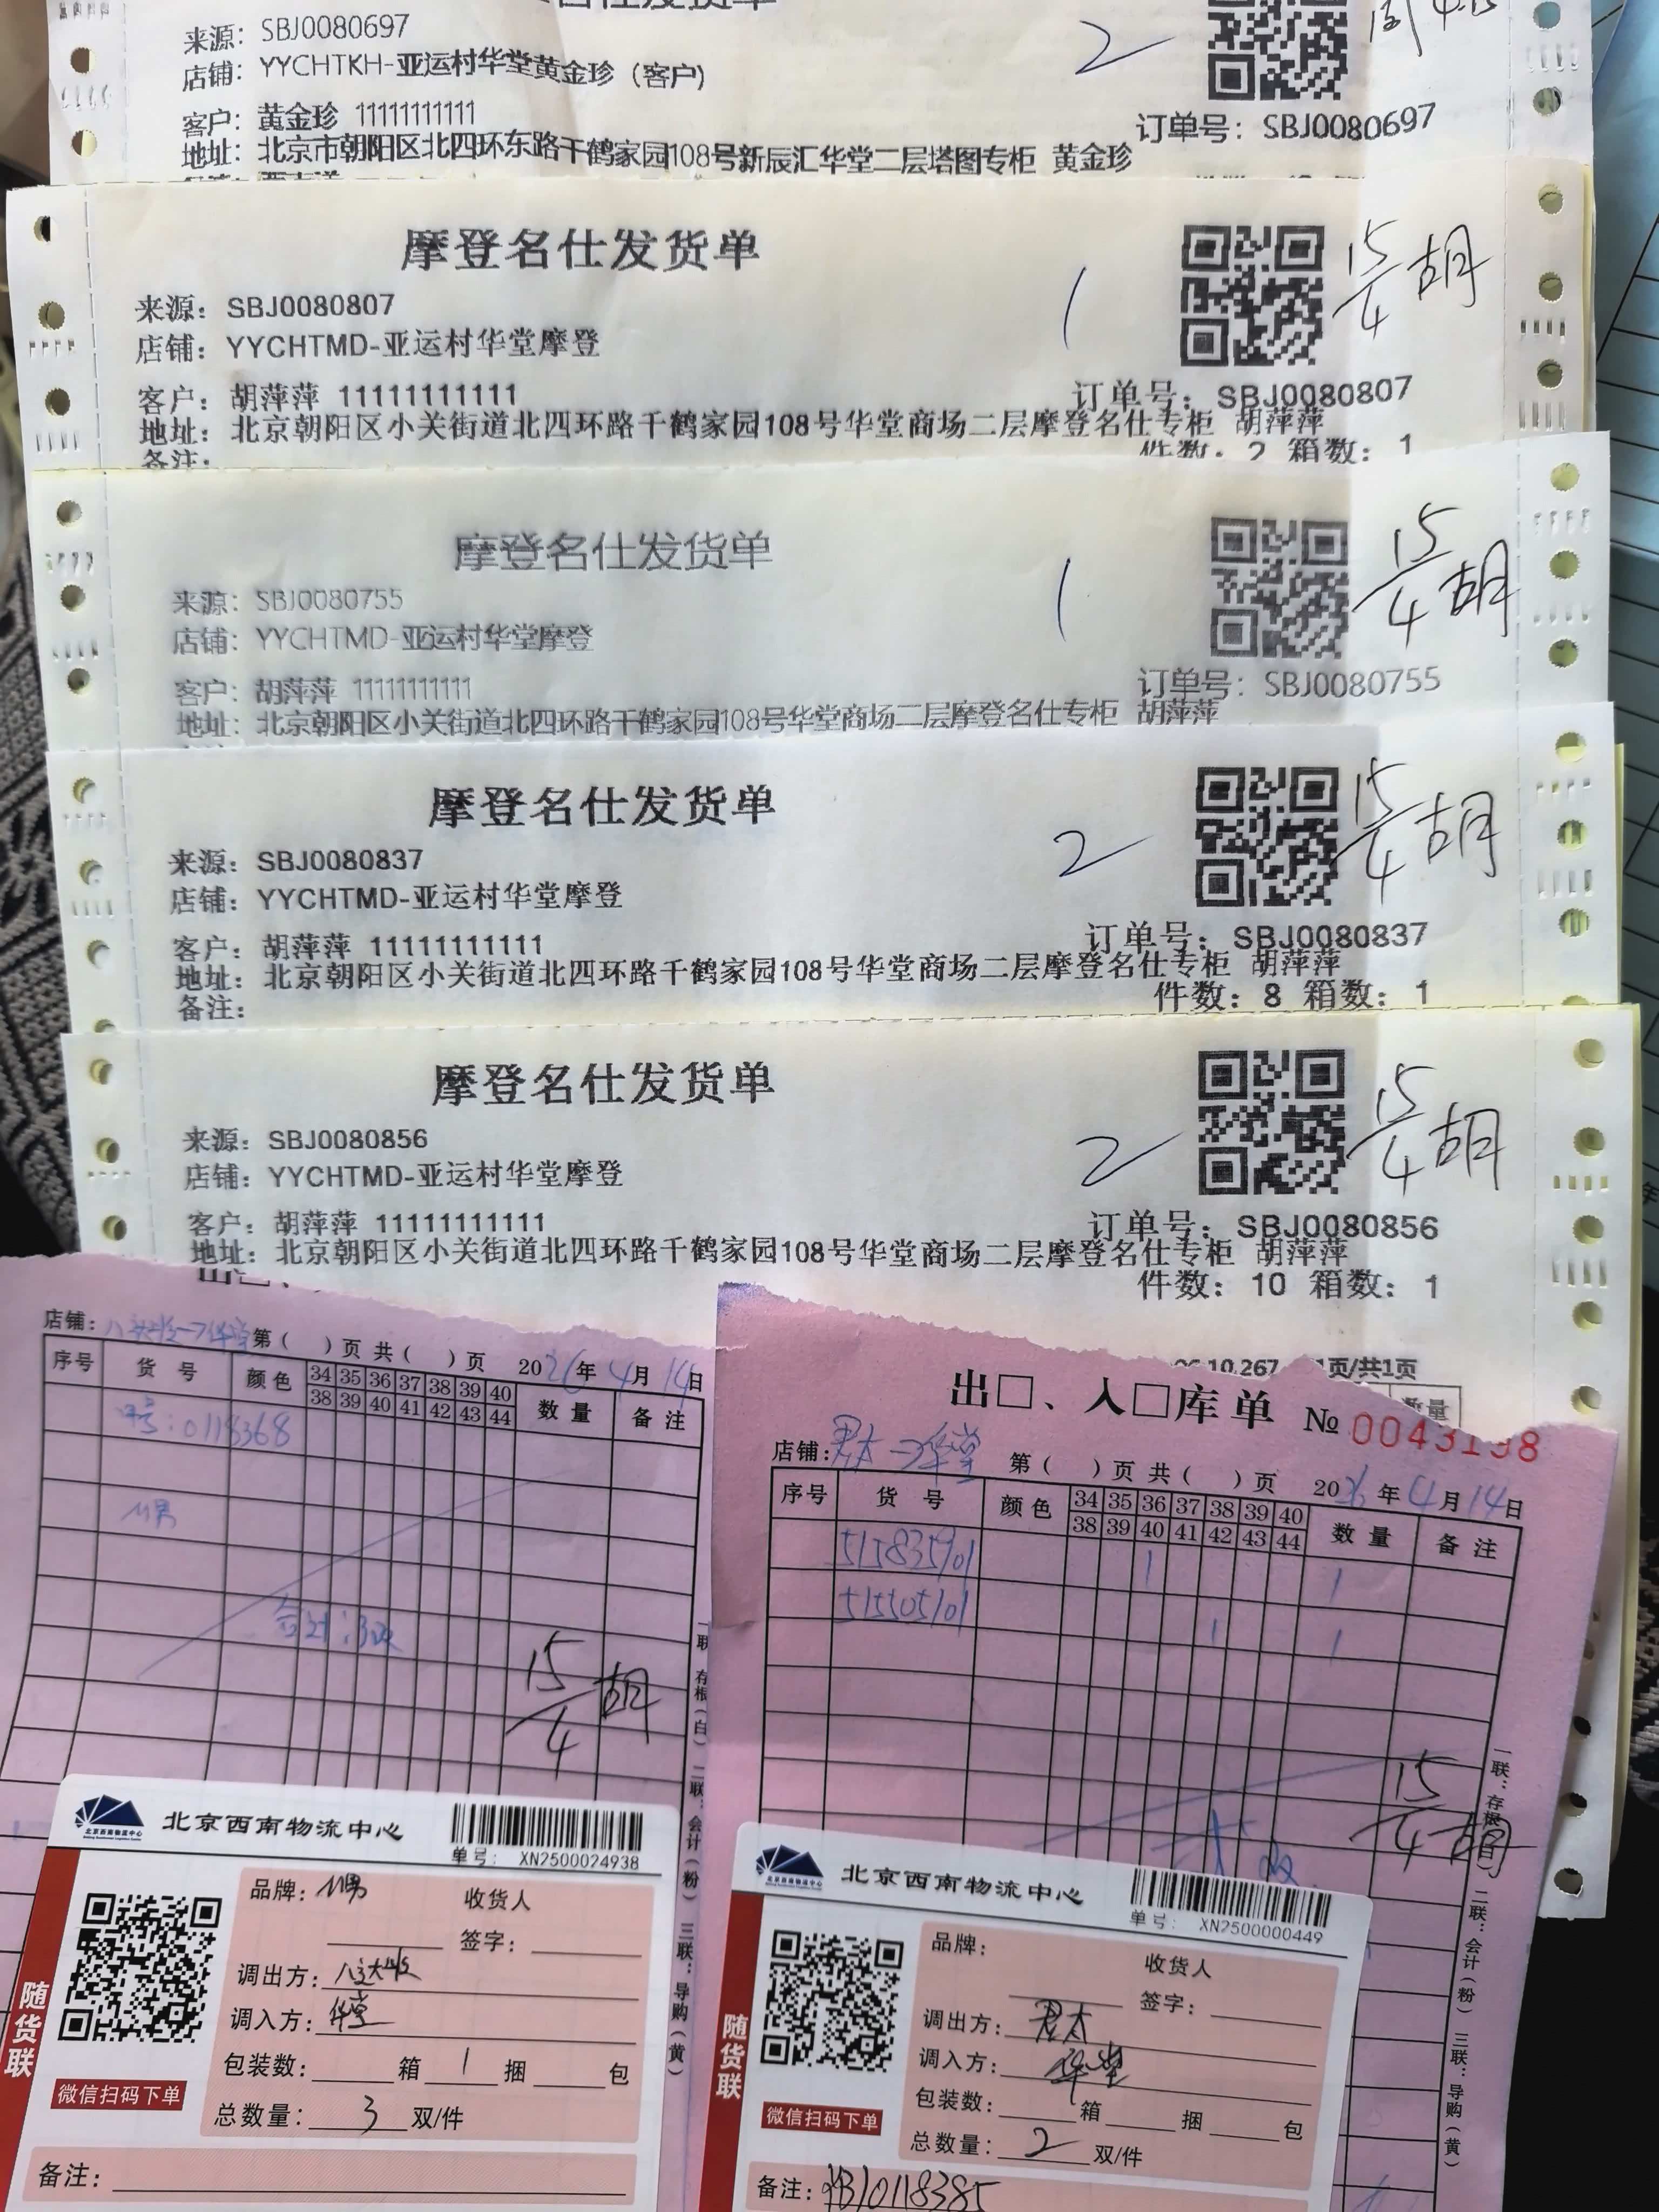 来源: SBJ0080697
店铺: YYCHTKH-亚运村华堂黄金珍 (客户)
2
客户: 黄金珍 11111111111
订单号: SBJ0080697
地址: 北京市朝阳区北四环东路千鹤家园108号新辰汇华堂二层塔图专柜 黄金珍
摩登名仕发货单
15/4 胡
来源: SBJ0080807
1
店铺: YYCHTMD-亚运村华堂摩登
客户: 胡萍萍 11111111111
订单号: SBJ0080807
地址: 北京朝阳区小关街道北四环路千鹤家园108号华堂商场二层摩登名仕专柜 胡萍萍
备注:
件数: 2 箱数: 1
摩登名仕发货单
15/4 胡
来源: SBJ0080755
1
店铺: YYCHTMD-亚运村华堂摩登
客户: 胡萍萍 11111111111
订单号: SBJ0080755
地址: 北京朝阳区小关街道北四环路千鹤家园108号华堂商场二层摩登名仕专柜 胡萍萍
摩登名仕发货单
15/4 胡
来源: SBJ0080837
2
店铺: YYCHTMD-亚运村华堂摩登
客户: 胡萍萍 11111111111
订单号: SBJ0080837
地址: 北京朝阳区小关街道北四环路千鹤家园108号华堂商场二层摩登名仕专柜 胡萍萍
备注:
件数: 8 箱数: 1
摩登名仕发货单
15/4 胡
来源: SBJ0080856
2
店铺: YYCHTMD-亚运村华堂摩登
客户: 胡萍萍 11111111111
订单号: SBJ0080856
地址: 北京朝阳区小关街道北四环路千鹤家园108号华堂商场二层摩登名仕专柜 胡萍萍
件数: 10 箱数: 1
10.267 1页/共1页
数量
店铺: 华堂 第( )页 共( )页 2026年4月14日
序号 货号 颜色 34 35 36 37 38 39 40 数量 备注
38 39 40 41 42 43 44
单号: 0118368
合计: 3双
15/4 胡
联: 存根(白) 二联: 会计(粉) 三联: 导购(黄)
出□、入□库单 № 0043198
店铺: 君太→华堂 第( )页 共( )页 2026年4月14日
序号 货号 颜色 34 35 36 37 38 39 40 数量 备注
38 39 40 41 42 43 44
515835901 1 1
515505101 1 1
15/4 胡
一联: 存根(白) 二联: 会计(粉) 三联: 导购(黄)
北京西南物流中心
单号: XN2500024938
品牌: 收货人
签字:
调出方: 八达岭
调入方: 华堂
包装数: 箱 1 捆 包
总数量: 3 双/件
备注:
随货联
微信扫码下单
北京西南物流中心
单号: XN2500000449
品牌: 收货人
签字:
调出方: 君太
调入方: 华堂
包装数: 箱 捆 包
总数量: 2 双/件
备注: XB10118385
随货联
微信扫码下单